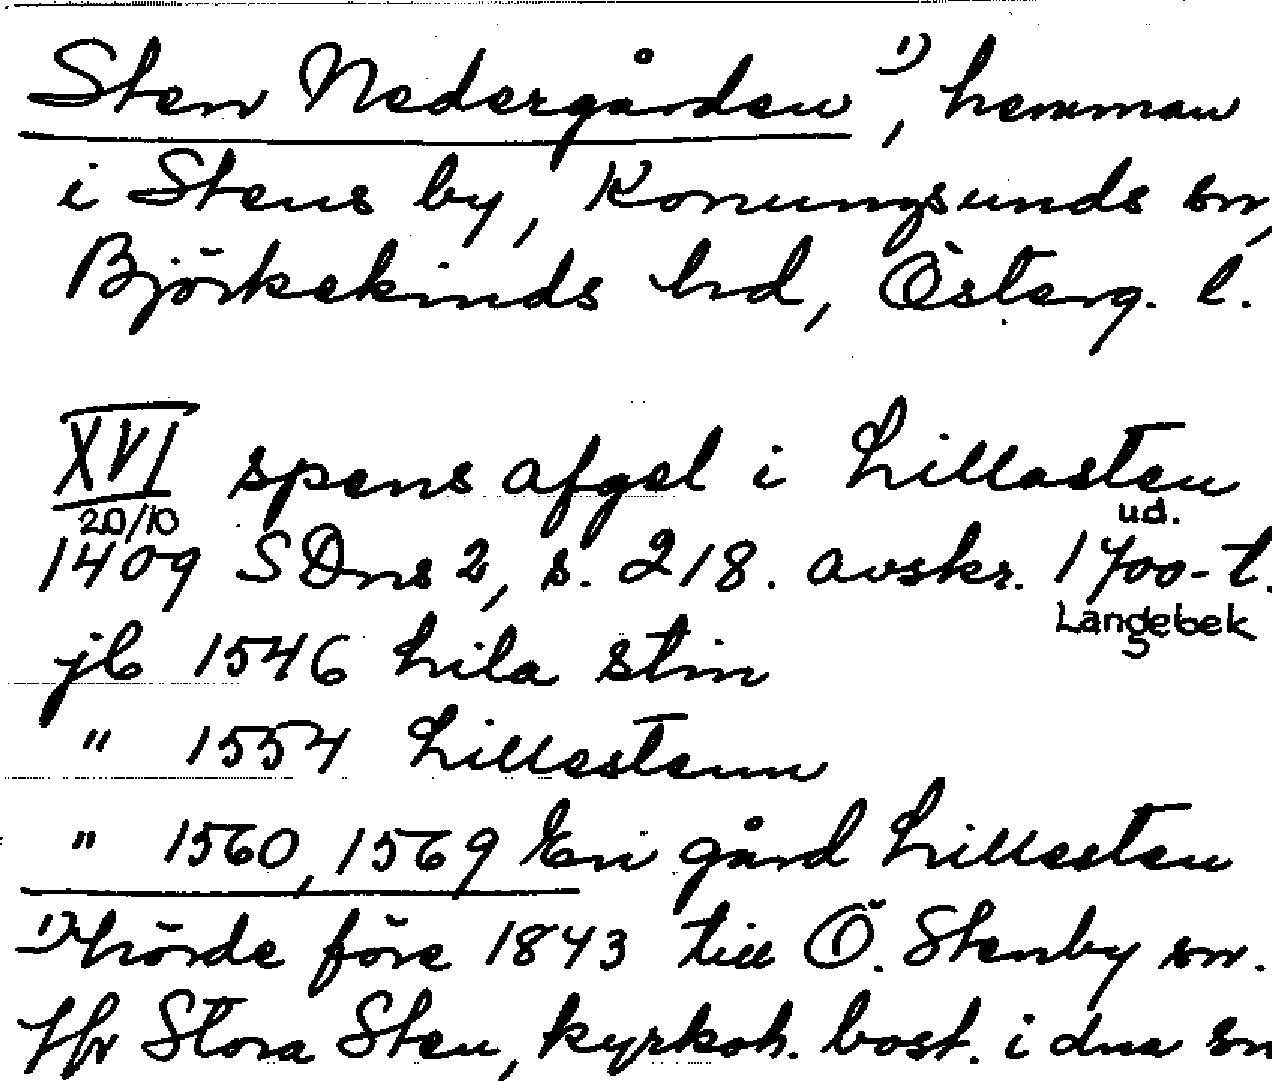 Sten Nedergården ¹⁾, hemman
i Stens by, Konungsunds sn,
Björkekinds hd, Österg. l.
XVI spens afgel i Lillasten
20/10 ud.
1409 SDns 2, s. 218. avskr. 1700-t.
Langebek
jb 1546 Lila stin
" 1554 Lillestenn
" 1560, 1569 En gård Lillesten
¹⁾ hörde före 1843 till Ö. Stenby sn.
Jfr Stora Sten, kyrkoh. bost. i dna sn